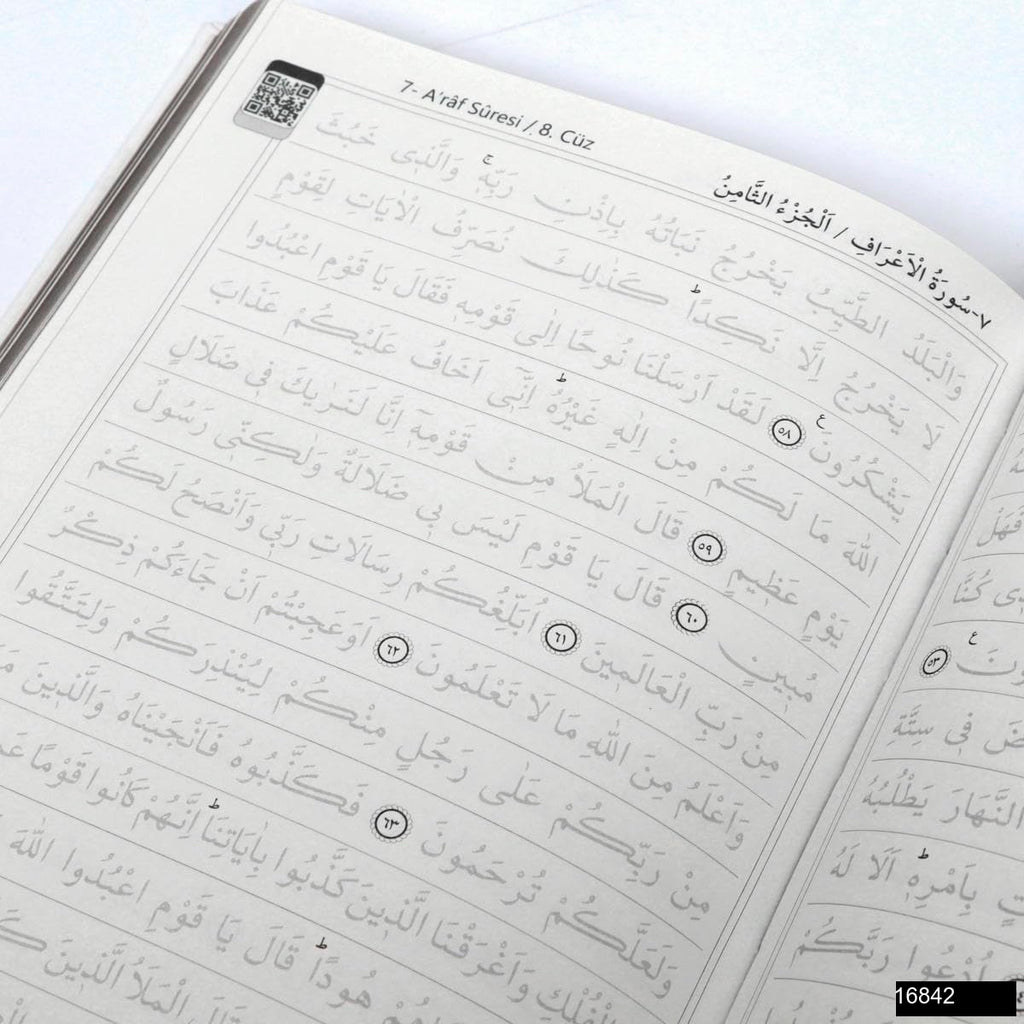 7- A'râf Sûresi / 8. Cüz
٧-سُورَةُ الْاَعْرَافِ / اَلْجُزْءُ الثَّامِنُ
وَالْبَلَدُ الطَّيِّبُ يَخْرُجُ نَبَاتُهُ بِاِذْنِ رَبِّهٖۚ وَالَّذٖى خَبُثَ
لَا يَخْرُجُ اِلَّا نَكِدًاؕ كَذٰلِكَ نُصَرِّفُ الْاٰيَاتِ لِقَوْمٍ
يَشْكُرُونَ ࣖ ٥٨ لَقَدْ اَرْسَلْنَا نُوحًا اِلٰى قَوْمِهٖ فَقَالَ يَا قَوْمِ اعْبُدُوا
اللّٰهَ مَا لَكُمْ مِنْ اِلٰهٍ غَيْرُهُؕ اِنّٖٓى اَخَافُ عَلَيْكُمْ عَذَابَ
يَوْمٍ عَظٖيمٍ ٥٩ قَالَ الْمَلَاُ مِنْ قَوْمِهٖٓ اِنَّا لَنَرٰيكَ فٖى ضَلَالٍ
مُبٖينٍ ٦٠ قَالَ يَا قَوْمِ لَيْسَ بٖى ضَلَالَةٌ وَلٰكِنّٖى رَسُولٌ
مِنْ رَبِّ الْعَالَمٖينَ ٦١ اُبَلِّغُكُمْ رِسَالَاتِ رَبّٖى وَاَنْصَحُ لَكُمْ
وَاَعْلَمُ مِنَ اللّٰهِ مَا لَا تَعْلَمُونَ ٦٢ اَوَعَجِبْتُمْ اَنْ جَٓاءَكُمْ ذِكْرٌ
مِنْ رَبِّكُمْ عَلٰى رَجُلٍ مِنْكُمْ لِيُنْذِرَكُمْ وَلِتَتَّقُوا
وَلَعَلَّكُمْ تُرْحَمُونَ ٦٣ فَكَذَّبُوهُ فَاَنْجَيْنَاهُ وَالَّذٖينَ
الْفُلْكِ وَاَغْرَقْنَا الَّذٖينَ كَذَّبُوا بِاٰيَاتِنَاؕ اِنَّهُمْ كَانُوا قَوْمًا
هُودًاؕ قَالَ يَا قَوْمِ اعْبُدُوا اللّٰهَ
قَالَ الْمَلَاُ الَّذٖينَ
كُنَّا
٥٣
فٖى سِتَّةِ
النَّهَارَ يَطْلُبُهُ
بِاَمْرِهٖؕ اَلَا لَهُ
اُدْعُوا رَبَّكُمْ
16842